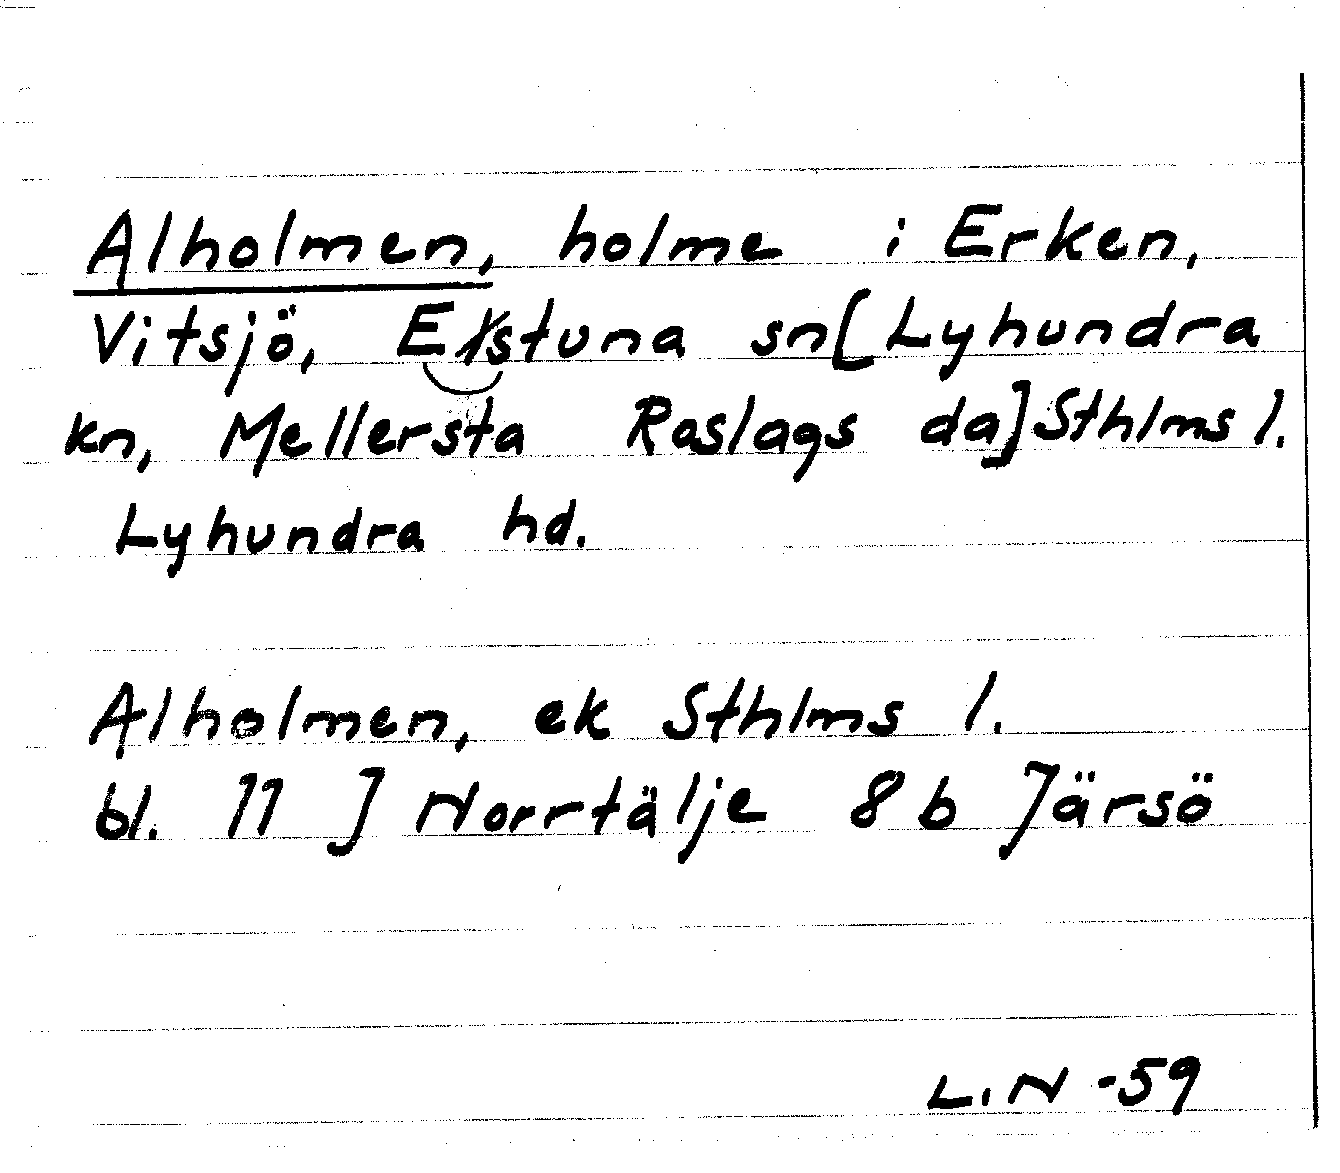 Alholmen, holme i Erken,
Vitsjö, Estuna sn[Lyhundra
kn, Mellersta Roslags da]Sthlms l.
Lyhundra hd.
Alholmen, ek Sthlms l.
bl. 11 J Norrtälje 8b Järsö
L.N -59